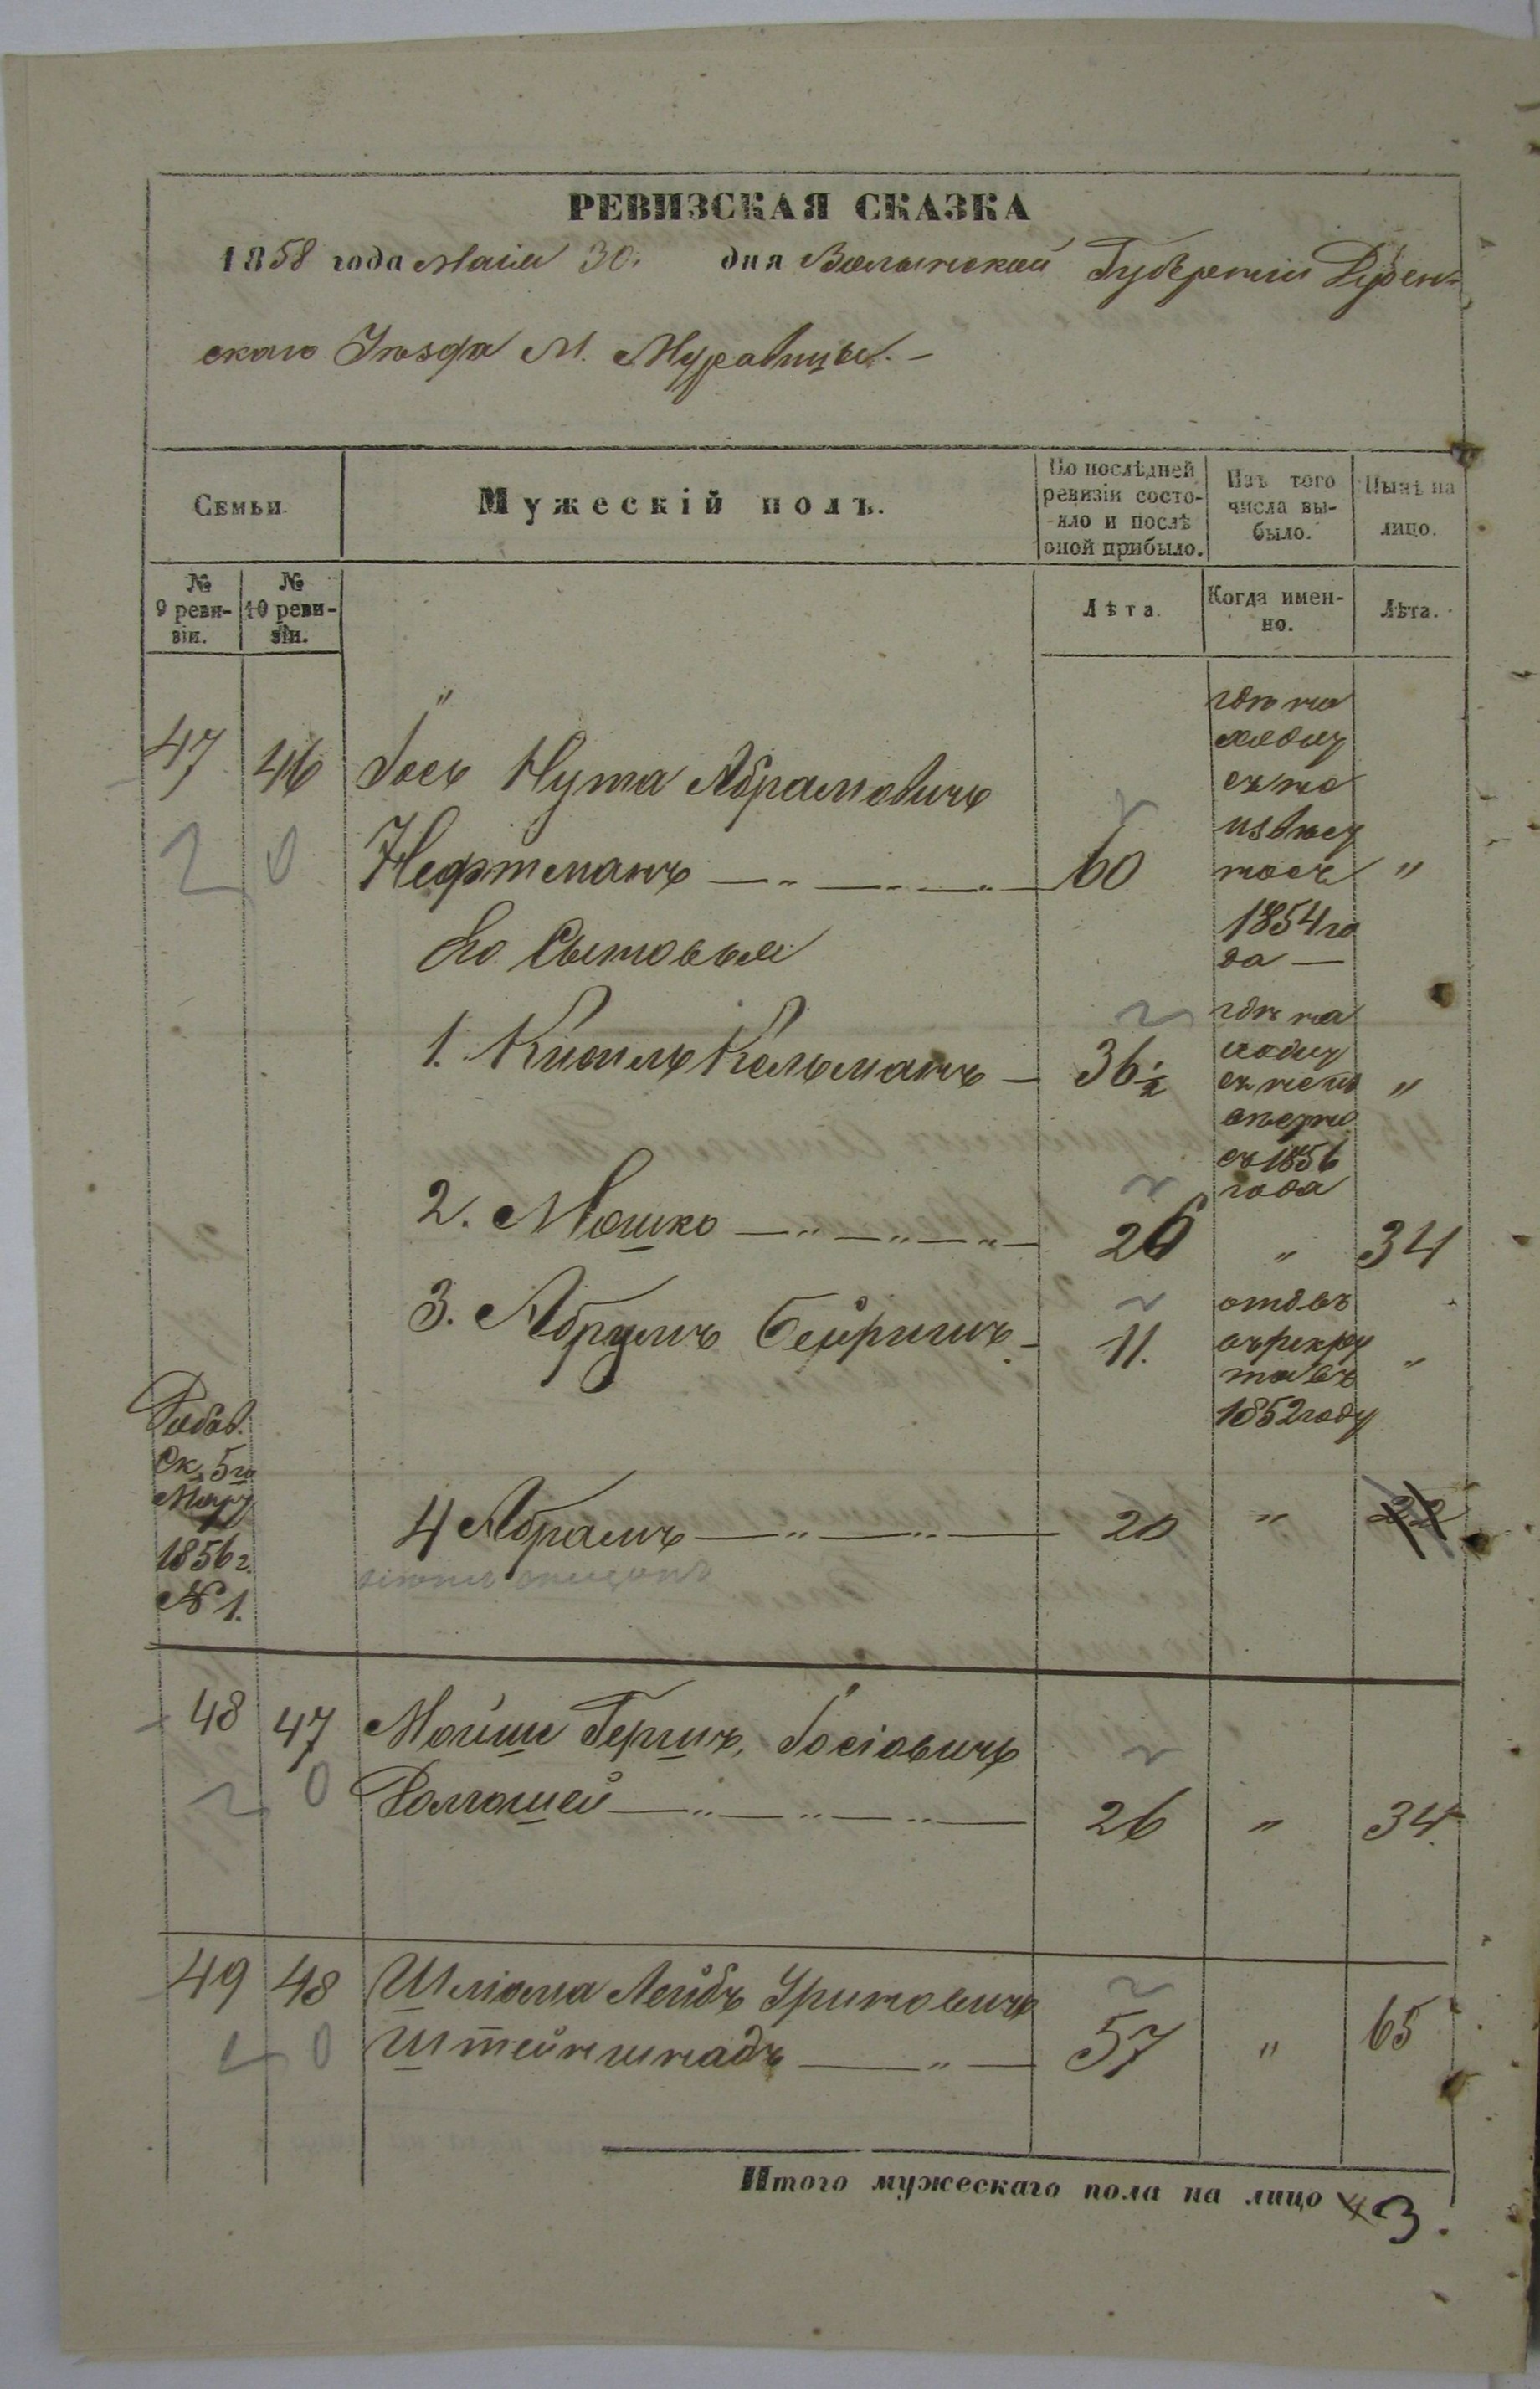 РЕВИЗСКАЯ СКАЗКА
1858 года Маія 30. дня Волынской Губерніи Дубен-
скаго Уѣзда М. Муравицы. –
Семьи.
Мужескій полъ.
По послѣдней ревизіи состо-
яло и послѣ оной прибыло.
Изъ того числа вы-
было.
Нынѣ на лицо.
№ 9 реви-
зіи.
№ 10 реви-
зіи.
Лѣта.
Когда имен-
но.
Лѣта.
47 46 Іось Нута Абрамовичъ
Нефтманъ 60 "
1854 го
да —
Его Сыновья
1. Кисиль Кельманъ — 36½ "
съ 1856
года
2. Мошко 26 " 34
3. Абрумъ Бейришъ 11. "
отданъ
въ рекру
ты въ
1852 году
Добав.
Ск. 5го
Мар.
1856 г.
№ 1.
4 Абрамъ 20 " 22
48 47 Мойше Гершъ, Іосіовичъ
26 " 34
49 48 Шліома Лейбъ Уриновичъ
Штейншнадъ 57 " 65
Итого мужескаго пола на лицо 4 3.